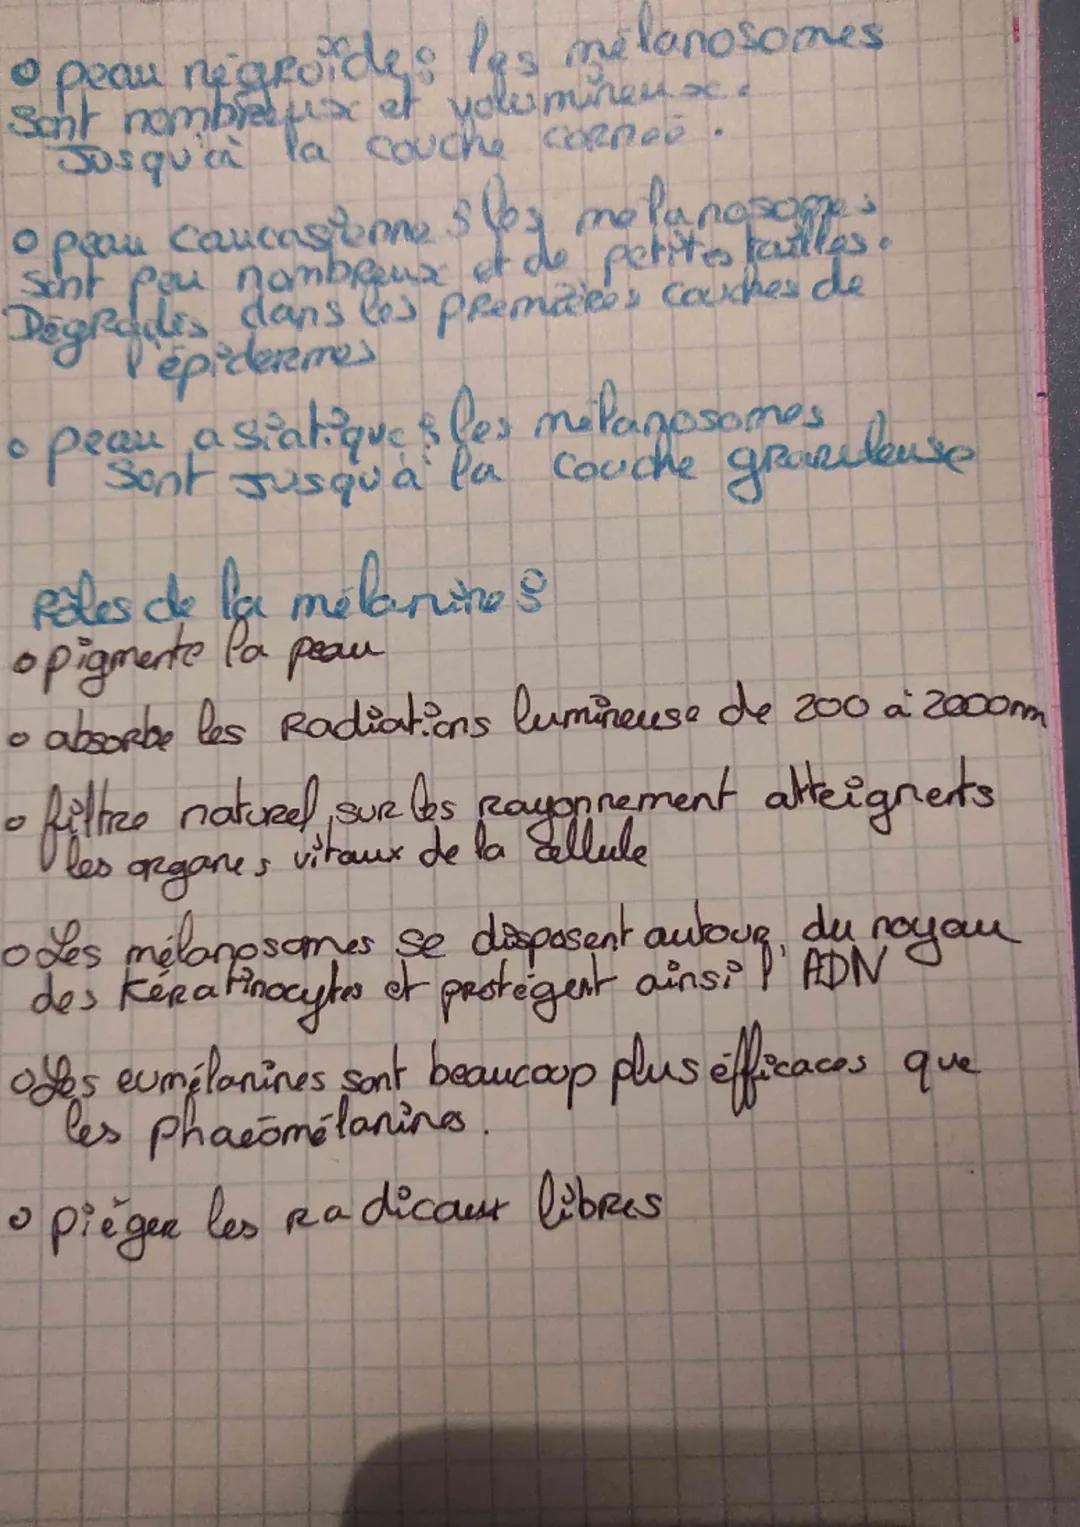 o peau négroïde : les mélanosomes
sont nombreux et volumineux.
Jusqu'à la couche cornée.
o peau caucasienne : les mélanosomes
sont peu nombreux et de petites tailles.
Dégradés dans les premières couches de
l'épidermes
o peau asiatique : les mélanosomes
sont jusqu'à la couche granuleuse
Rôles de la mélanine :
o pigmente la peau
o absorbe les Radiations lumineuse de 200 à 2000nm
o filtre naturel sur les rayonnement atteignents
les organes vitaux de la cellule
o Les mélanosomes se disposent autour du noyau
des kératinocytes et protégent ainsi l'ADN
o Les eumélanines sont beaucoup plus éfficaces que
les phaéomélanines.
o pièger les radicaux libres